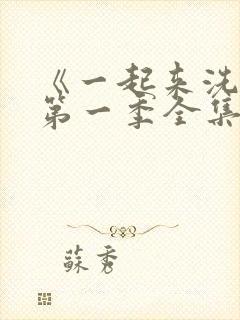 《一起来洗
第一季全集
蘇秀